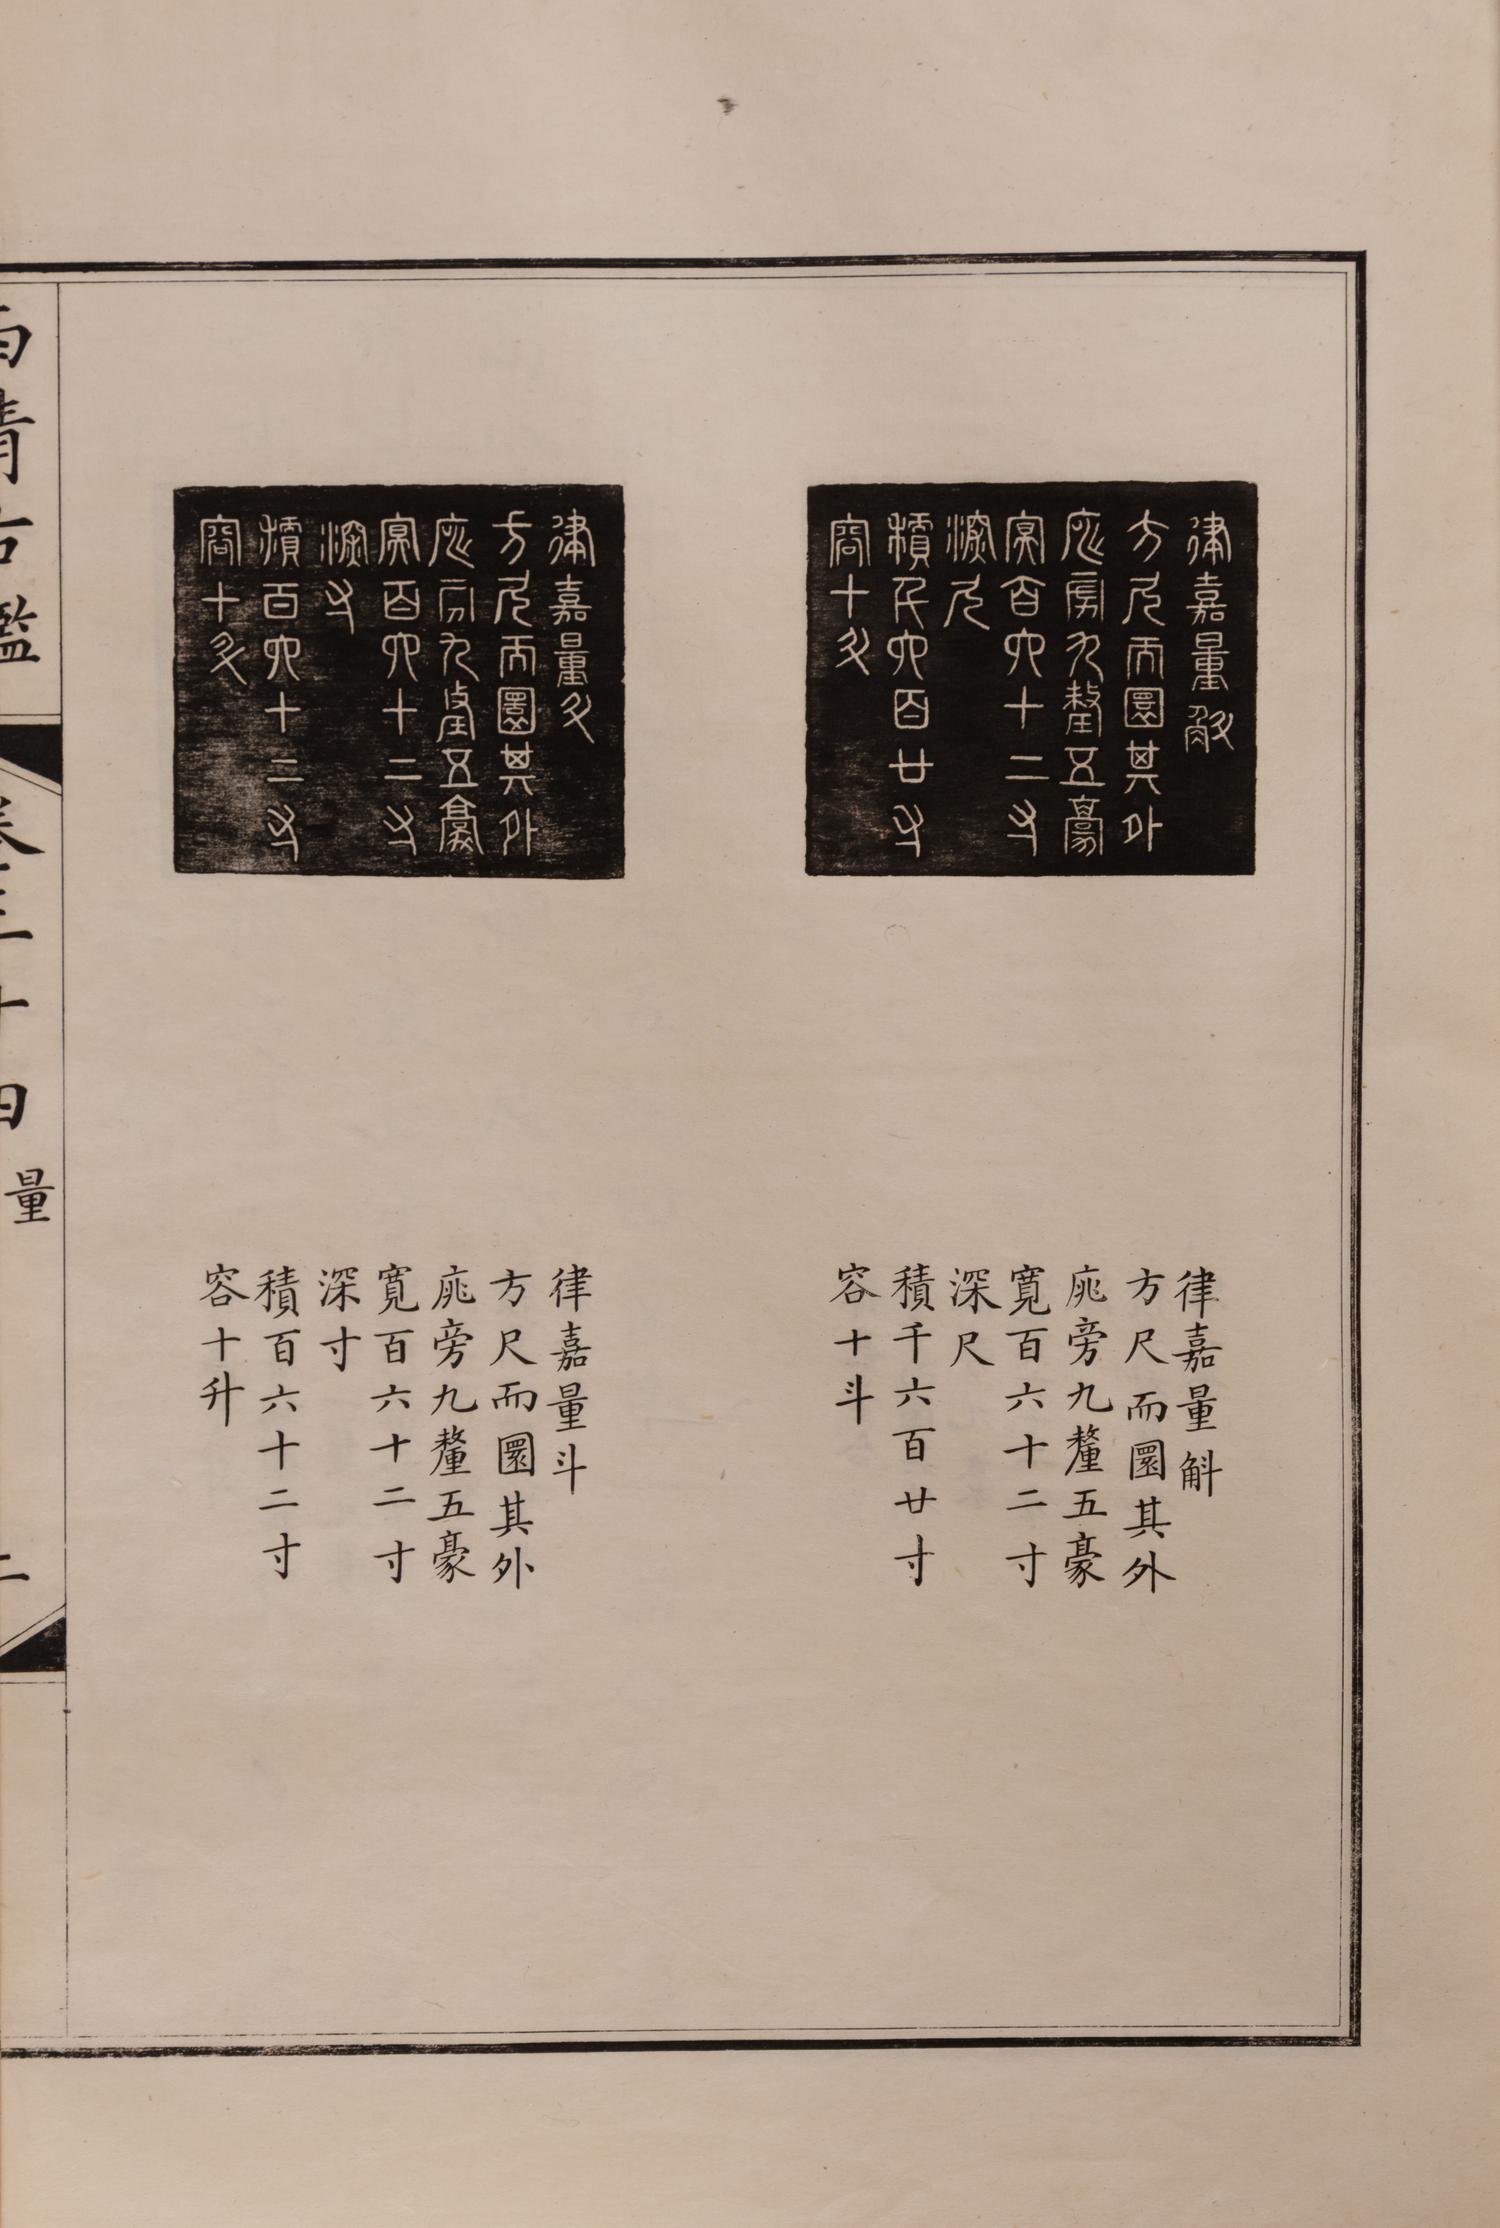 律嘉量斛
方尺而圜其外
庣旁九釐五豪
冥百六十二寸
深尺
積千六百廿寸
容十斗
律嘉量斛
方尺而圜其外
庣旁九釐五豪
寬百六十二寸
深尺
積千六百廿寸
容十斗
律嘉量斗
方尺而圜其外
庣旁九釐五豪
冥百六十二寸
深寸
積百六十二寸
容十升
律嘉量斗
方尺而圜其外
庣旁九釐五豪
寬百六十二寸
深寸
積百六十二寸
容十升
西清古鑑
卷三十四
量
二